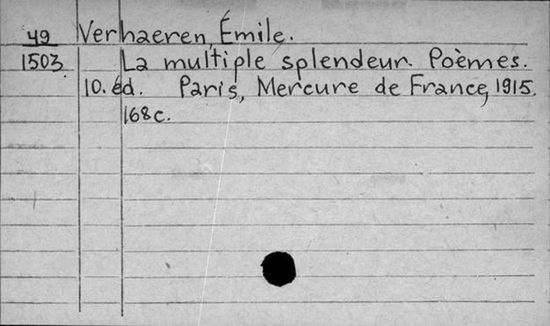 49 Verhaeren, Émile.
1503 La multiple splendeur. Poèmes.
10. éd. Paris, Mercure de France, 1915.
168c.